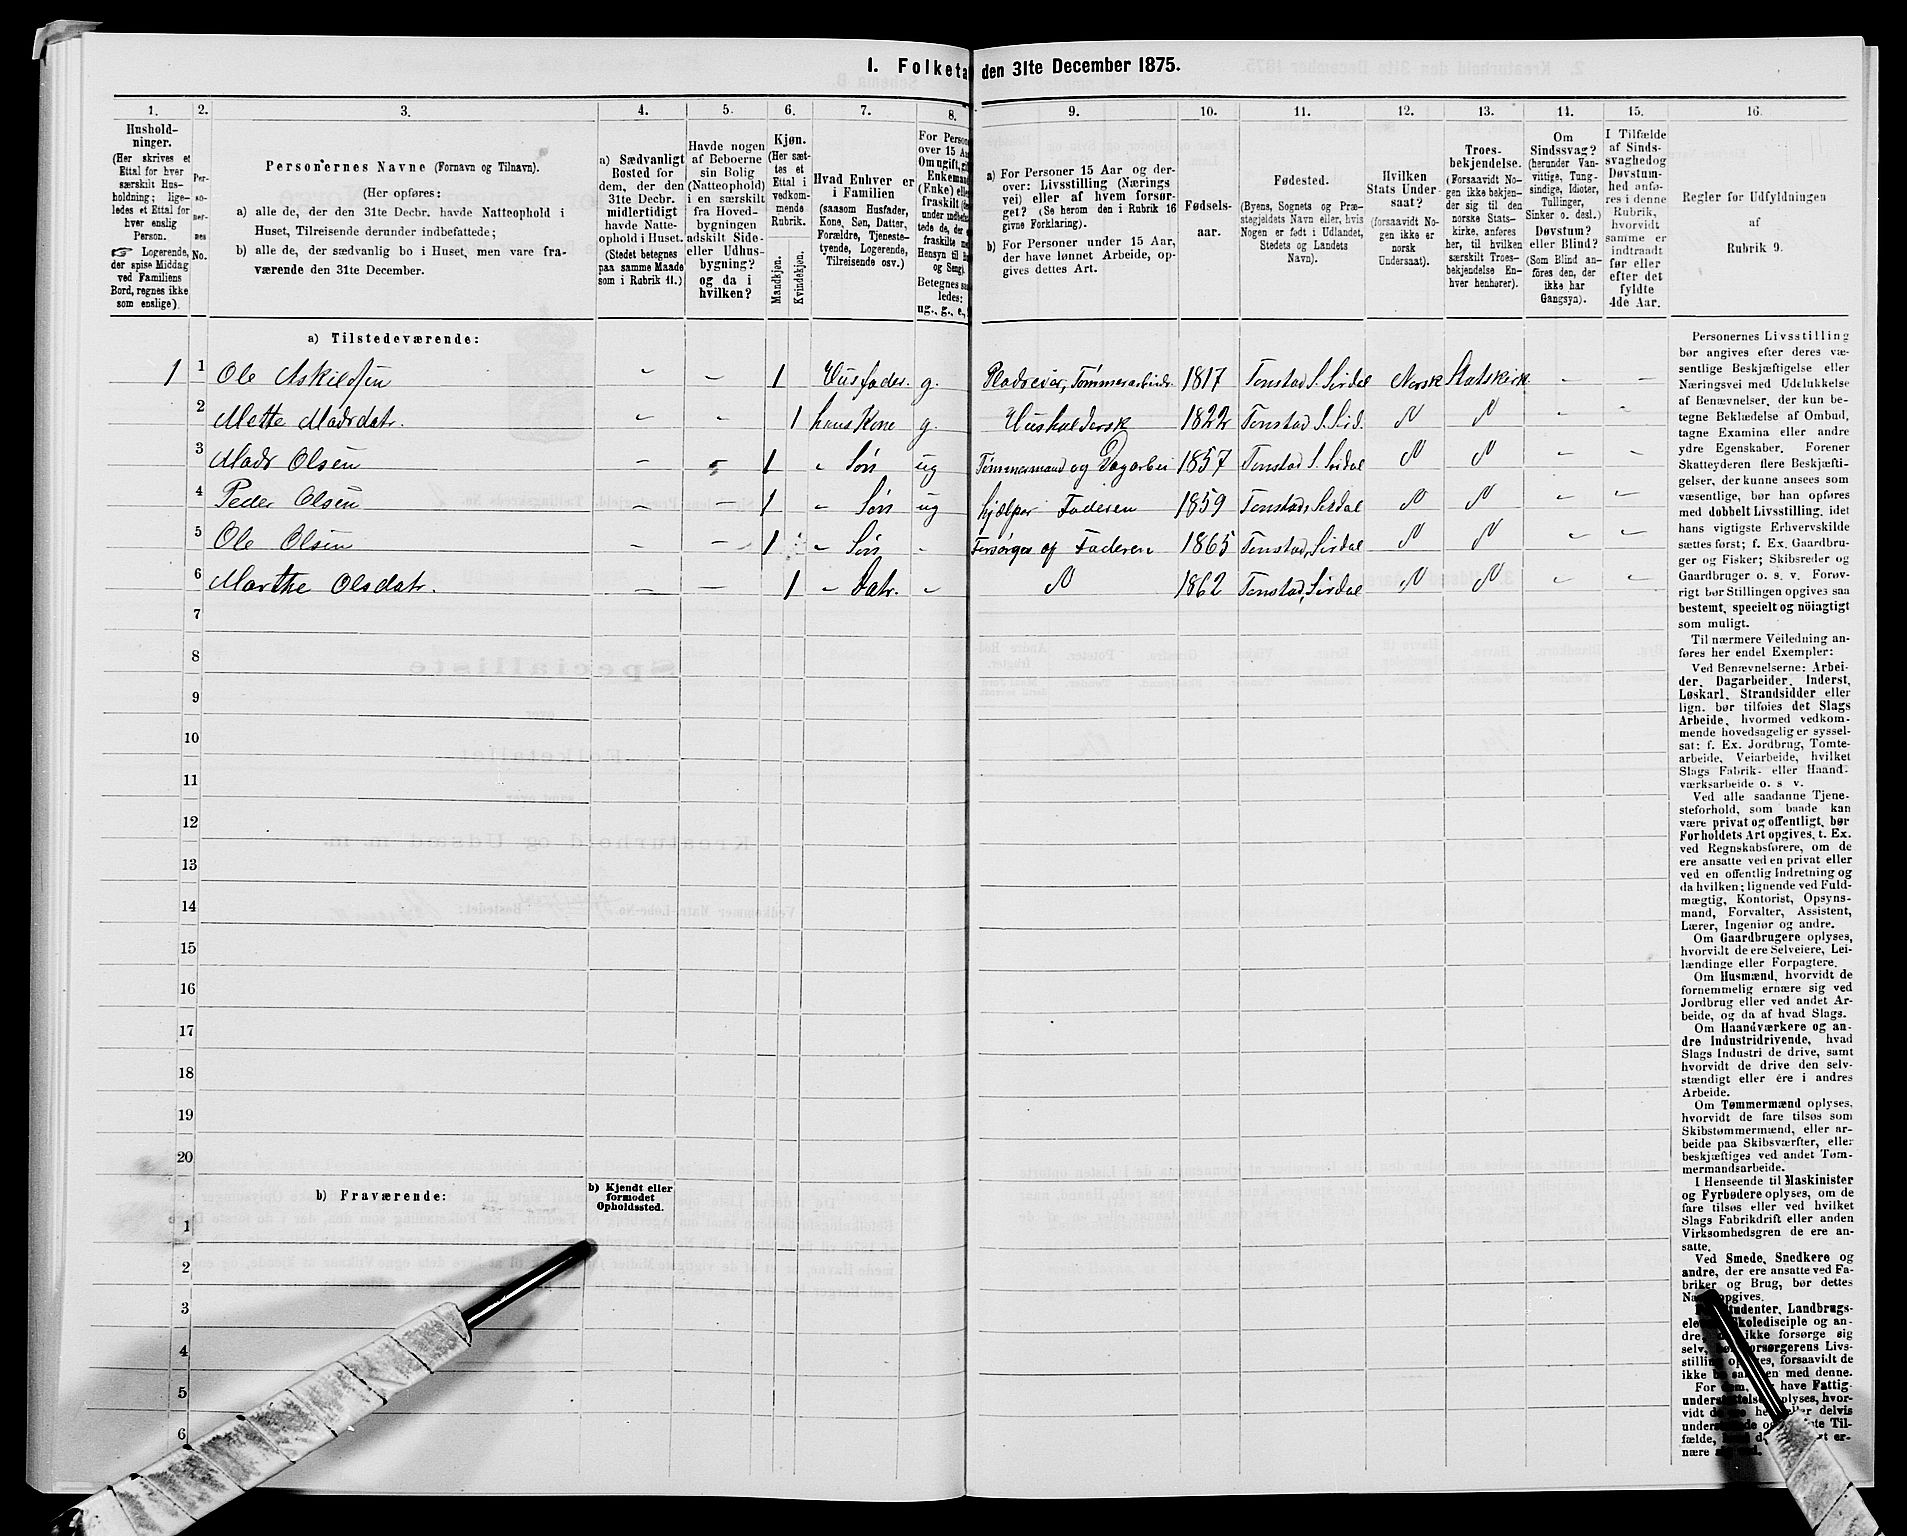 I. Folketa den 31te December 1875.
1. 2. 3. 4. 5. 6. 7. 8. 9. 10. 11. 12. 13. 14. 15. 16.
Hushold-
ninger.
(Her skrives et
Ettal for hver
særskilt Hus-
holdning; lige-
ledes et Ettal for
hver enslig
Person.
Logerende,
der spise Middag
ved Familiens
Bord, regnes ikke
som enslige).
Per-
so-
ner-
nes
No.
Personernes Navne (Fornavn og Tilnavn).
(Her opføres:
a) alle de, der den 31te Decbr. havde Natteophold i
Huset, Tilreisende derunder indbefattede;
b) alle de, der sædvanlig bo i Huset, men vare fra-
værende den 31te December.
a) Sædvanligt
Bosted for
dem, der den
31te Decbr.
midlertidigt
havde Natte-
ophold i Huset.
(Stedet betegnes
paa samme Maade
som i Rubrik 11.)
Havde nogen
af Beboerne
sin Bolig
(Natteophold)
i en særskilt
fra Hoved-
bygningen
adskilt Side-
eller Udhus-
bygning?
og da i
hvilken?
Kjøn.
(Her sæt-
tes et
Ettal i
vedkom-
mende
Rubrik.
Mandkjøn.
Kvindekjøn.
Hvad Enhver er
i Familien
(saasom Husfader,
Kone, Søn, Datter,
Forældre, Tjeneste-
tyende, Logerende,
Tilreisende osv.)
For Person
over 15 Aa
Om ugift, gi
Enkemand
(Enke) elle
fraskilt (de
under indbefat-
tede de, der
fraskilte
Hensyn til
og Seng).
Betegnes saa
ledes:
ug., g., e.,
a) For Personer 15 Aar og der-
over: Livsstilling (Nærings
vei) eller af hvem forsør-
get? (Se herom den i Rubrik 16
givne Forklaring).
b) For Personer under 15 Aar,
der have lønnet Arbeide, op-
gives dettes Art.
Fødsels-
aar.
Fødested.
(Byens, Sognets og Præ-
stegjeldets Navn eller, hvis
Nogen er født i Udlandet,
Stedets og Landets
Navn).
Hvilken
Stats Under-
saat?
(forsaavidt No-
gen ikke er
norsk
Undersaat).
Troes-
bekjendelse.
(Forsaavidt No-
gen ikke bekjen-
der sig til den
norske Stats-
kirke, anføres
her, til hvilken
særskilt Troes-
bekjendelse En-
hver henhører).
Om
Sindssvag?
(herunder Van-
vittige, Tung-
sindige, Idioter,
Tullinger,
Sinker o. desl.)
Døvstum?
eller Blind?
(Som Blind an-
føres den, der
ikke har
Gangsyn).
I Tilfælde
af Sinds-
svaghed og
Døvstum-
hed anfø-
res i denne
Rubrik,
hvorvidt
samme er
indtraadt
før eller
efter det
fyldte
4de Aar.
Regler for Udfyldningen
af
Rubrik 9.
a) Tilstedeværende:
1 1 Ole Askildsen - - 1 Husfader. g. Pladseier, Tømmerarbeide. 1817 Tonstad S. Sirdal Norsk Statskirk - -
2 Mette Madsdatr. - - 1 hans Kone g. Husholdersk 1822 Tonstad S. Sird. 〃 〃 - -
3 Mads Olsen - - 1 - Søn ug Tømmermand og Dagarbei 1857 Tonstad S. Sirdal 〃 〃 - -
4 Peder Olsen - - 1 - Søn ug hjælper Faderen 1859 Tonstad, Sirdal 〃 〃 - -
5 Ole Olsen - - 1 - Søn - Forsørges af Faderen 1865 Tonstad, Sirdal 〃 〃 - -
6 Marthe Olsdatr. - - 1 - Datr. - 〃 1862 Tonstad, Sirdal 〃 〃 - -
7
8
9
10
11
12
13
14
15
16
17
18
19
20
b) Fraværende:
b) Kjendt eller
formodet
Opholdssted.
1
2
3
4
5
6
Personernes Livsstilling
bør angives efter deres væ-
sentlige Beskjæftigelse eller
Næringsvei med Udelukkelse
af Benævnelser, der kun be-
tegne Beklædelse af Ombud,
tagne Examina eller andre
ydre Egenskaber. Forener
Skatteyderen flere Beskjæfti-
gelser, der kunne ansees som
væsentlige, bør han opføres
med dobbelt Livsstilling, idet
hans vigtigste Erhvervskilde
sættes først; f. Ex. Gaardbru-
ger og Fisker; Skibsreder og
Gaardbruger o. s. v. Forøv-
rigt bør Stillingen opgives saa
bestemt, specielt og nöiagtigt
som muligt.
Til nærmere Veiledning an-
føres her endel Exempler:
Ved Benævnelserne: Arbei-
der, Dagarbeider, Inderst,
Løskarl, Strandsidder eller
lign. bør tilføies det Slags
Arbeide, hvormed vedkom-
mende hovedsagelig er syssel-
sat: f. Ex. Jordbrug, Tomte-
arbeide, Veiarbeide, hvilket
Slags Fabrik- eller Haand-
værksarbeide o. s. v.
Ved alle saadanne Tjene-
steforhold, som baade kan
være privat og offentligt, bør
Forholdets Art opgives, t. Ex.
ved Regnskabsførere, om de
ere ansatte ved en privat eller
ved en offentlig Indretning og
da hvilken; lignende ved Fuld-
mægtig, Kontorist, Opsyns-
mand, Forvalter, Assistent,
Lærer, Ingeniør og andre.
Om Gaardbrugere oplyses,
hvorvidt de ere Selveiere, Lei-
lændinge eller Forpagtere.
Om Husmænd, hvorvidt de
fornemmelig ernære sig ved
Jordbrug eller ved andet Ar-
beide, og da af hvad Slags.
Om Haandværkere og an-
dre Industridrivende, hvad
Slags Industri de drive, samt
hvorvidt de drive den selv-
stændigt eller ére i andres
Arbeide.
Om Tømmermænd oplyses,
hvorvidt de fare tilsøs som
Skibstømmermænd, eller ar-
beide paa Skibsværfter, eller
beskjæftiges ved andet Tøm-
mermandsarbeide.
I Henseende til Maskinister
og Fyrbødere oplyses, om de
fare tilsøs eller ved hvilket
Slags Fabrikdrift eller anden
Virksomhedsgren de ere an-
satte.
Ved Smede, Snedkere og
andre, der ere ansatte ved Fa-
briker og Brug, bør dettes
opgives.
Studenter, Landbrugs-
Skoledisciple og an-
dre, ikke forsørge sig
selv, Forsørgerens Livs-
stilling oplyses, forsaavidt de
ikke sammen med denne.
For dem, have Fattig-
understøttelse oplyses, hvor-
vidt delvis
Til-
fælde, er-
nære